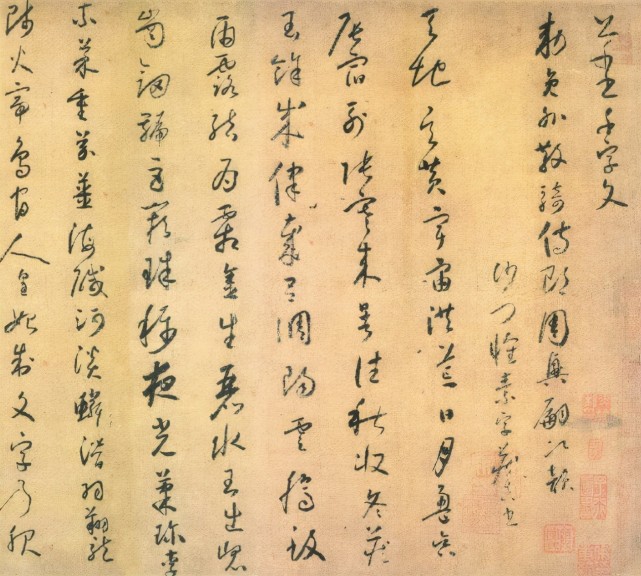 草書千字文
勑員外散騎侍郎周興嗣次韻
沙門懷素字藏真書
天地玄黃宇宙洪荒日月盈昃
辰宿列張寒來暑往秋收冬藏
閏餘成律歲呂調陽雲騰致
雨露結為霜金生麗水玉出崑
崗劍號巨闕珠稱夜光菓珍李
柰菜重芥薑海醎河淡鱗潛羽翔龍
師火帝鳥官人皇始制文字乃服